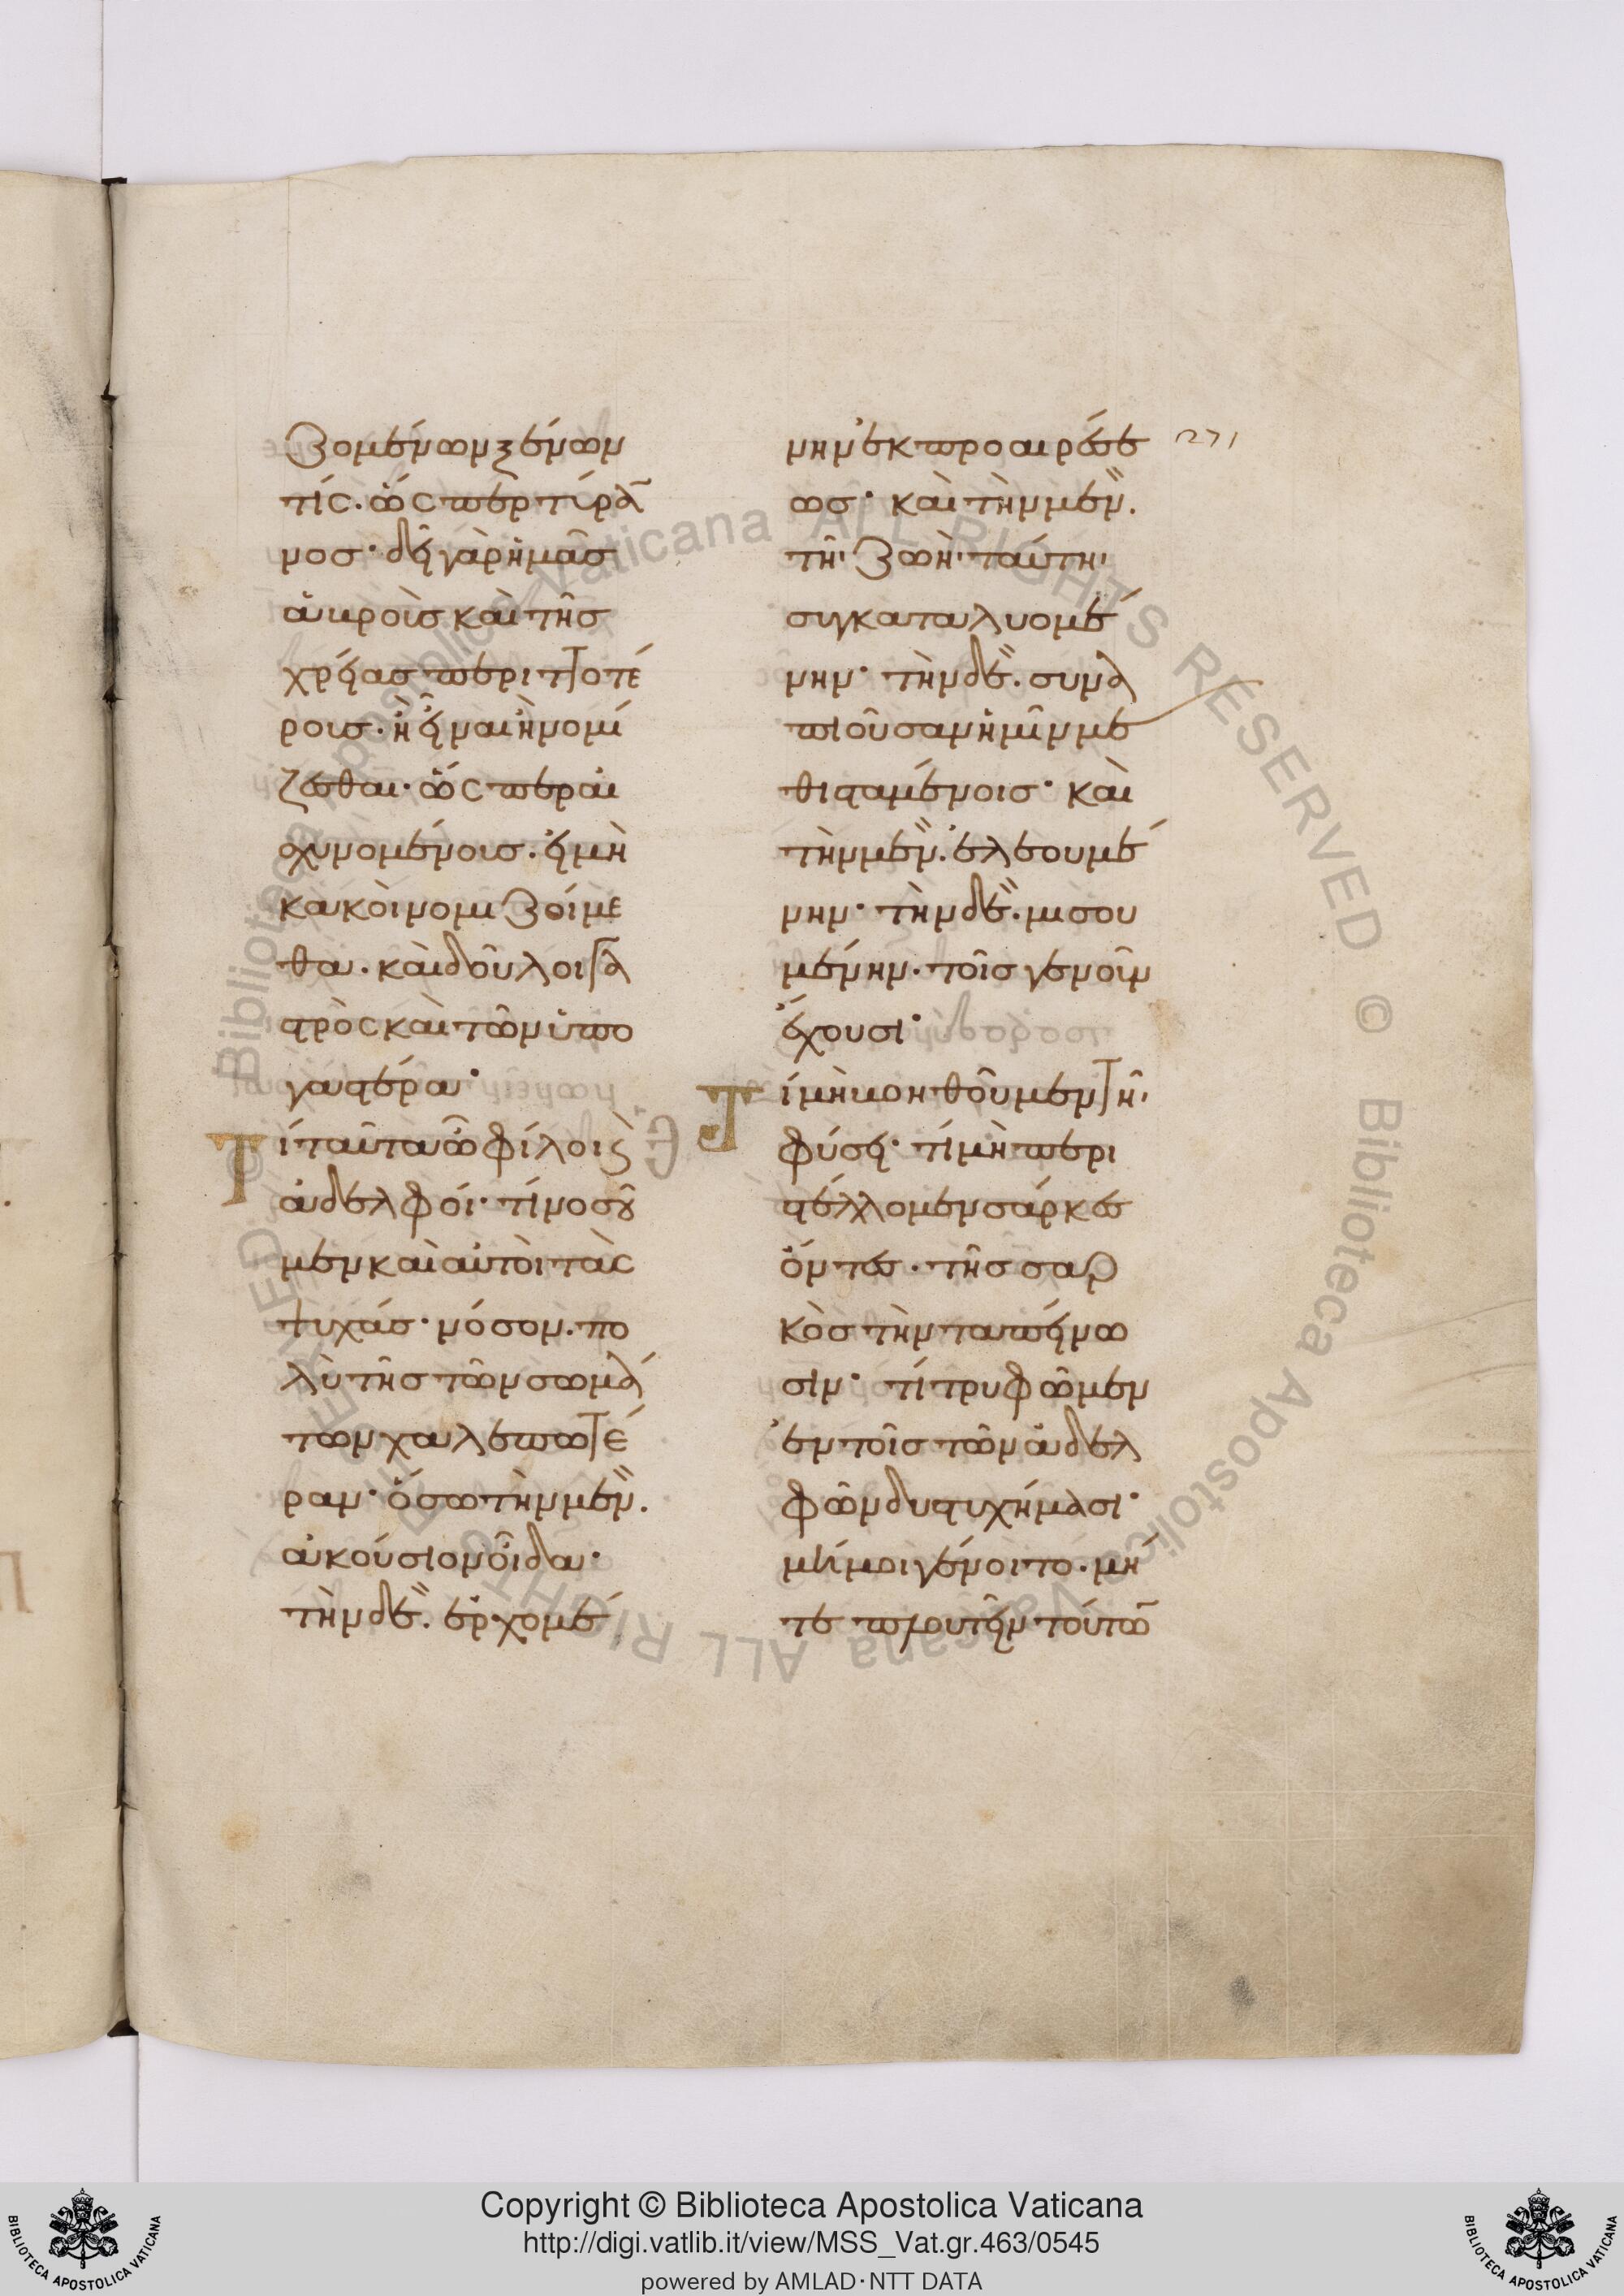 ζομένων ξένων
τίς· ὥσπερ τύρα
νος· δεῖ γὰρ ἡμᾶς
ἀβροῖς καὶ τῆς
χρείας περιττοτέ
ροις· ἢ εἶναι ἢ νομί
ζεσθαι· ὥσπερ αἰ
σχυνομένοις· εἰ μὴ
κακοὶ νομιζοίμε
θα· καὶ δοῦλοι γα
στρὸς καὶ τῶν ὑπὸ
γαστέρα·
Τί ταῦτα ὦ φίλοι καὶ
ἀδελφοί· τί νοσοῦ
μεν καὶ αὐτοὶ τὰς
ψυχάς· νόσον· πο
λὺ τῆς τῶν σωμά
των χαλεπωτέ
ραν· ὅσω τὴν μὲν.
ἀκούσιον οἶδα·
τὴν δὲ. ἐρχομέ
νην ἐκ προαιρέσε
ως· καὶ τὴν μὲν.
τῆι ζωῆι ταύτηι
συγκαταλυομέ
νην· τὴν δὲ. συμα
πιοῦσαν ἡμῖν με
θισταμένοις· καὶ
τὴν μὲν. ἐλεουμέ
νην· τὴν δὲ. μισου
μένην· τοῖς γε νοῦν
ἔχουσι·
Τί μὴ βοηθοῦμεν τῆι
φύσει· τί μὴ περι
στέλλομεν σάρκες
ὄντες· τῆς σαρ
κὸς τὴν ταπείνω
σιν· τί τρυφῶμεν
ἐν τοῖς τῶν ἀδελ
φῶν δυστυχήμασι·
μή μοι γένοιτο· μή
τε πλουτεῖν τούτων
271
Copyright © Biblioteca Apostolica Vaticana
http://digi.vatlib.it/view/MSS_Vat.gr.463/0545
powered by AMLAD·NTT DATA
BIBLIOTECA APOSTOLICA VATICANA
BIBLIOTECA APOSTOLICA VATICANA